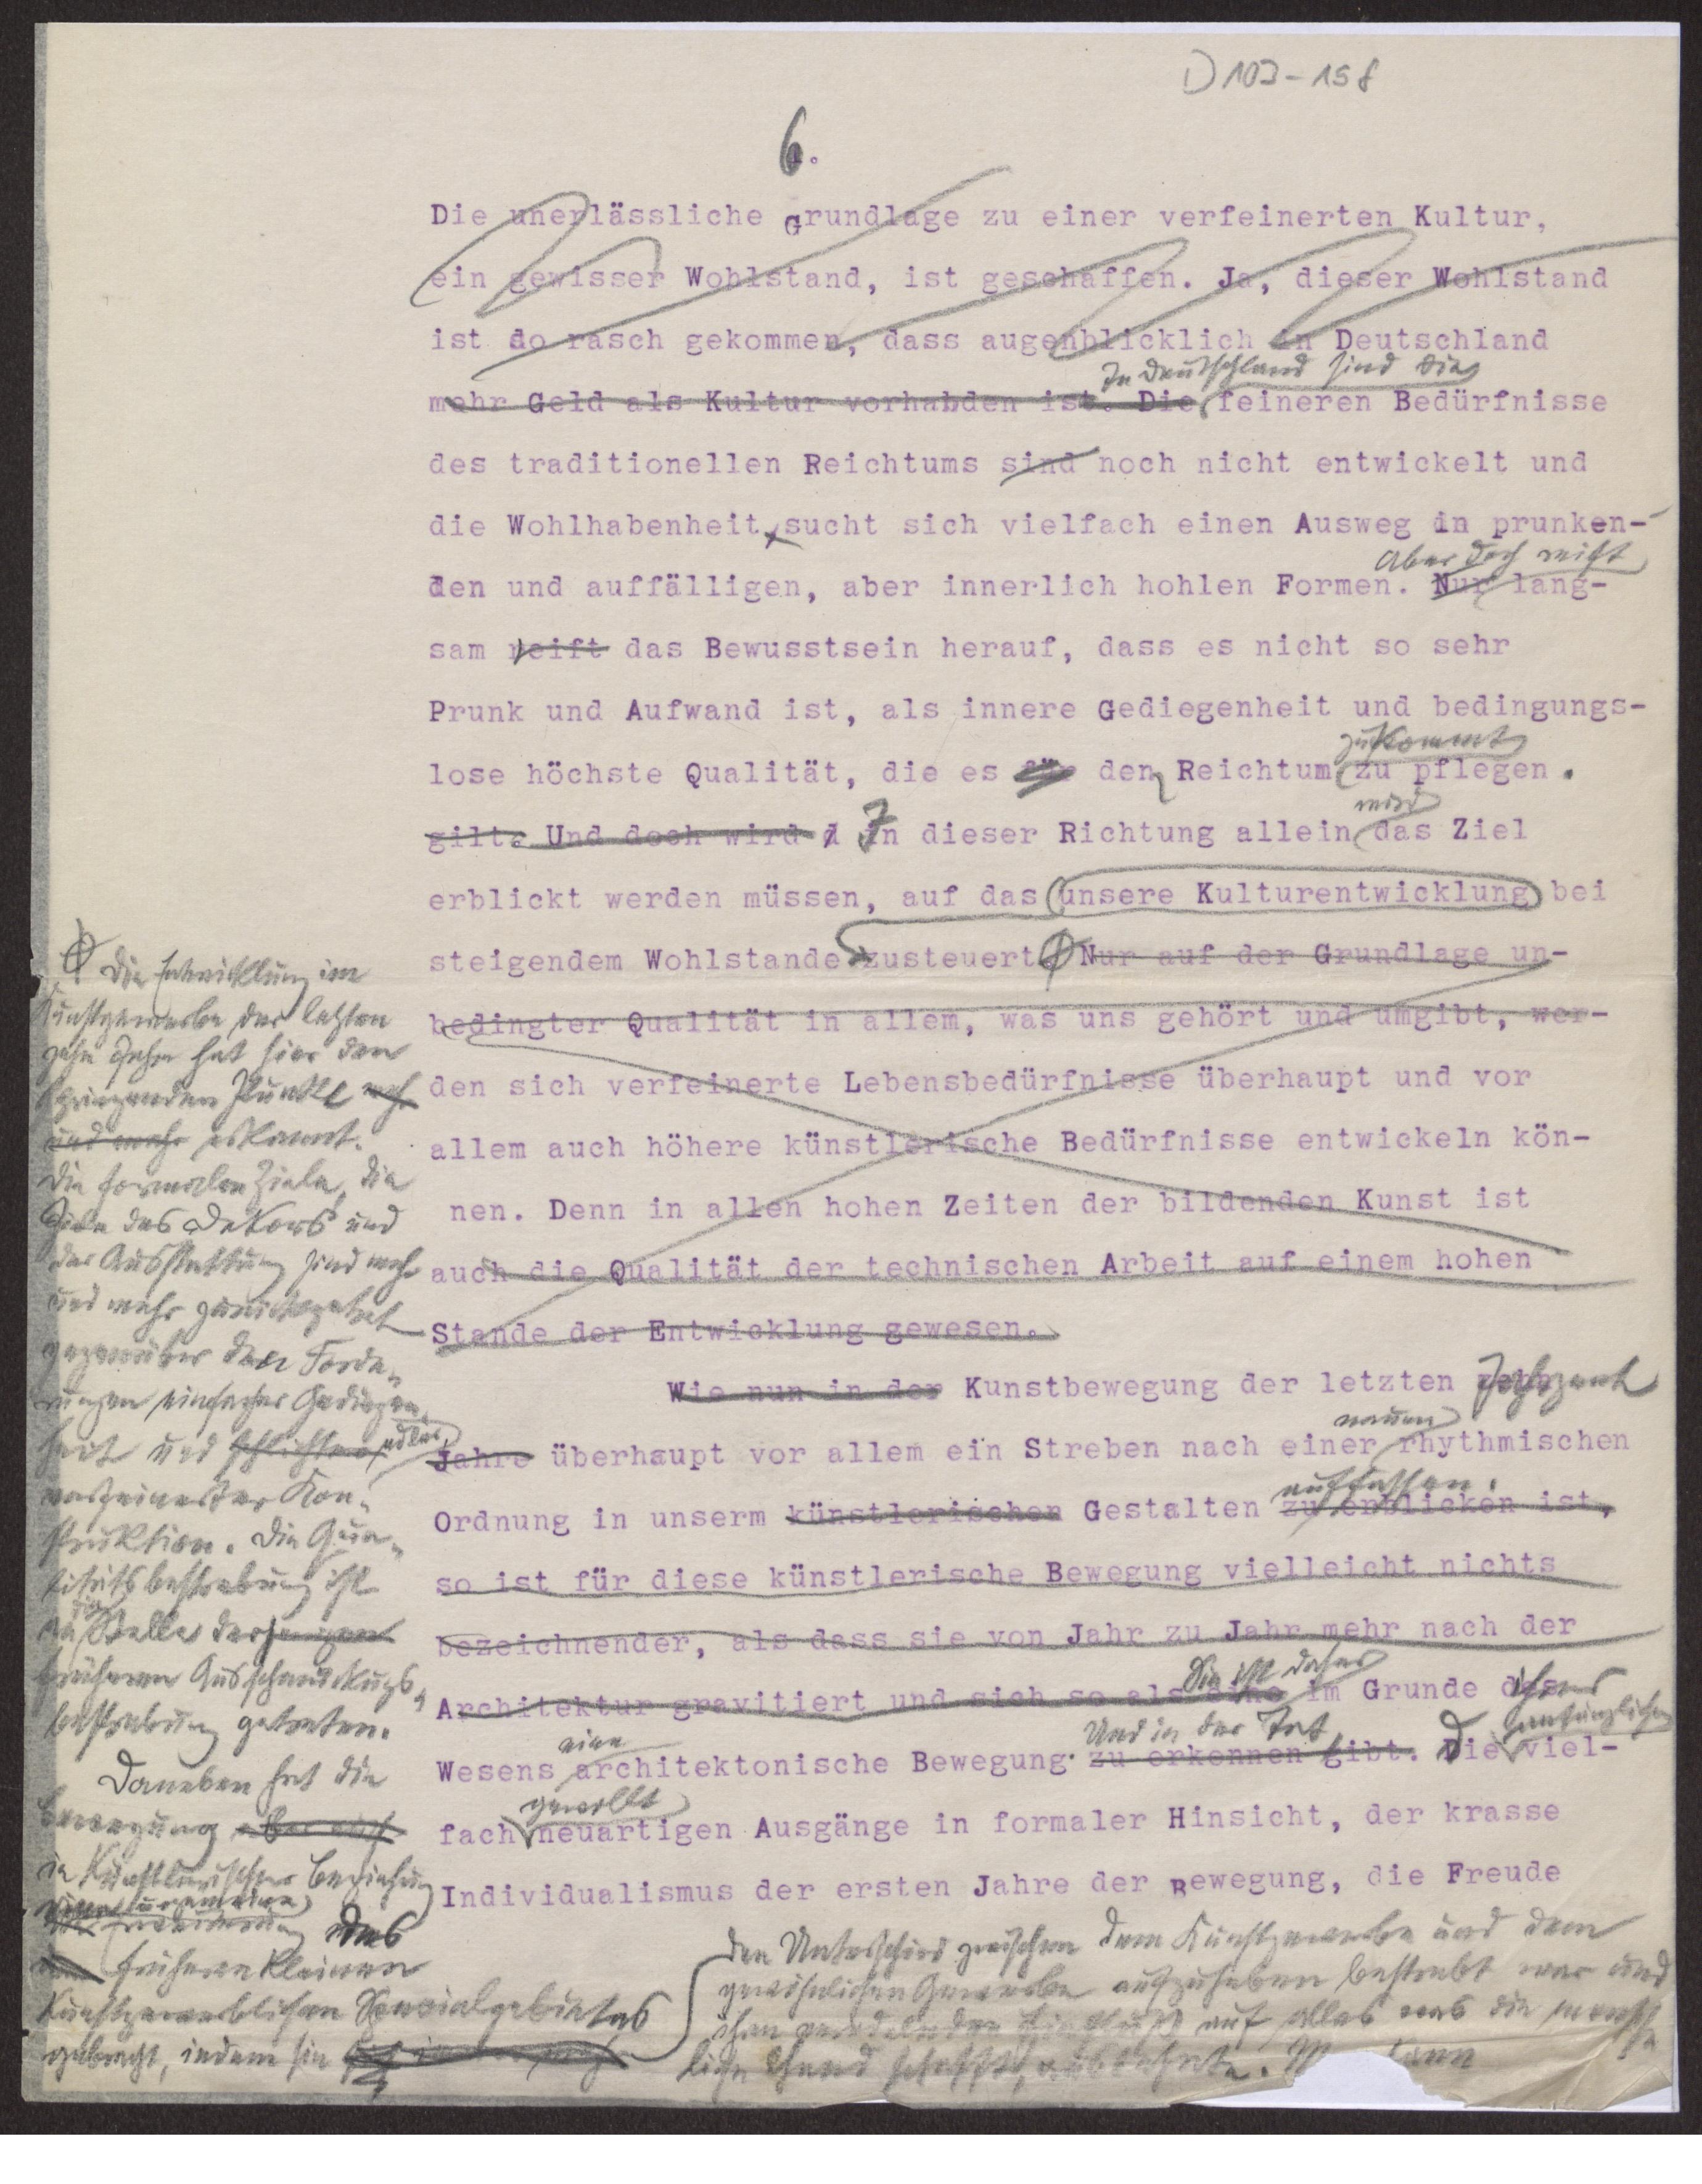 D 103-158
6.
Die unerlässliche Grundlage zu einer verfeinerten Kultur,
ein gewisser Wohlstand, ist geschaffen. Ja, dieser Wohlstand
ist so rasch gekommen, dass augenblicklich in Deutschland
In Deutschland sind die
mehr Geld als Kultur vorhabden ist. Die feineren Bedürfnisse
des traditionellen Reichtums sind noch nicht entwickelt und
die Wohlhabenheit sucht sich vielfach einen Ausweg in prunken-
aber doch reift
den und auffälligen, aber innerlich hohlen Formen. Nur lang-
sam reift das Bewusstsein herauf, dass es nicht so sehr
Prunk und Aufwand ist, als innere Gediegenheit und bedingungs-
zukommt
lose höchste Qualität, die es für den Reichtum zu pflegen.
wird
gilt. Und doch wird i In dieser Richtung allein das Ziel
erblickt werden müssen, auf das unsere Kulturentwicklung bei
steigendem Wohlstande zusteuert. Nur auf der Grundlage un-
bedingter Qualität in allem, was uns gehört und umgibt, wer-
den sich verfeinerte Lebensbedürfnisse überhaupt und vor
allem auch höhere künstlerische Bedürfnisse entwickeln kön-
nen. Denn in allen hohen Zeiten der bildenden Kunst ist
auch die Qualität der technischen Arbeit auf einem hohen
Stande der Entwicklung gewesen.
Wie nun in der Kunstbewegung der letzten Jahrzent
neuen
Jahre überhaupt vor allem ein Streben nach einer rhythmischen
auffassen.
Ordnung in unserm künstlerischen Gestalten zu erblicken ist,
so ist für diese künstlerische Bewegung vielleicht nichts
bezeichnender, als dass sie von Jahr zu Jahr mehr nach der
Sie ist daher
Architektur gravitiert und sich so als eine im Grunde ihres
eine
Und in der Tat
anfänglichen
Wesens architektonische Bewegung zu erkennen gibt. Die viel-
gewollt
fach neuartigen Ausgänge in formaler Hinsicht, der krasse
Individualismus der ersten Jahre der Bewegung, die Freude
Die Entwicklung im
Kunstgewerbe der letzten
zehn Jahre hat hier den
springenden Punkt mehr
und mehr erkannt.
Die formalen Ziele, die
Ziele des Dekors und
der Ausstattung sind mehr
und mehr zurückgetreten
gegenüber den Forde-
rungen einfacher Gediegen-
heit und schlichter edler
verfeinerter Kon-
struktion. Die Qua-
litätsbestrebung ist
an die Stelle derjenigen
früheren Ausschmückungs-
bestrebung getreten.
Daneben hat die
Bewegung aber auch
in künstlerischer Beziehung
Erweiterung des
früheren kleinen
kunstgewerblichen Spezialgebietes
gebracht, indem sie
den Unterschied zwischen dem Kunstgewerbe und dem
gewöhnlichen Gewerbe aufzuheben bestrebt war und
ihren veredelnden Einfluss auf alles was die mensch-
liche Hand schafft, ausdehnte.